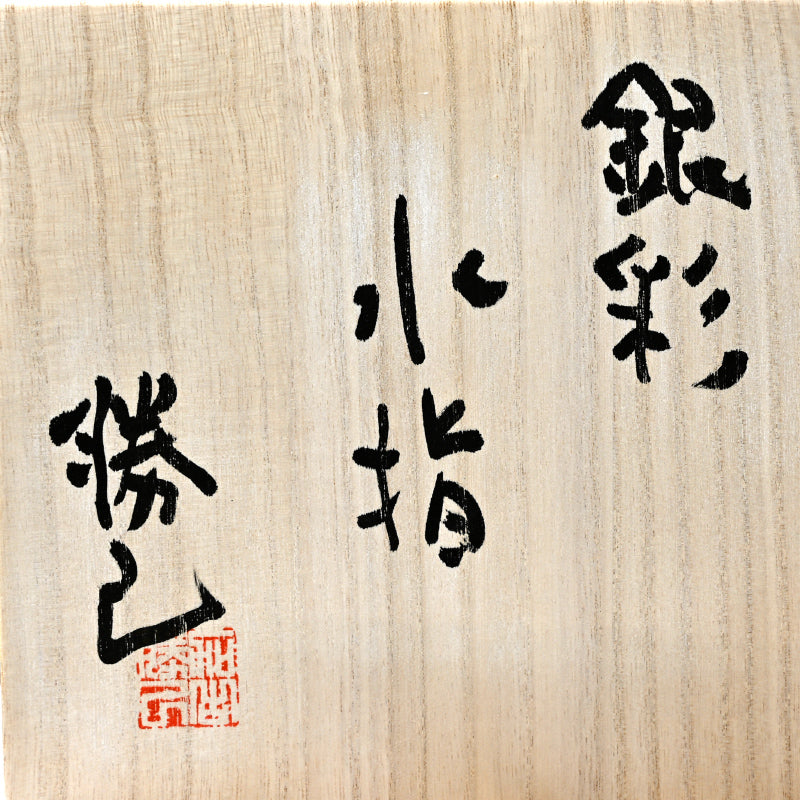 銀彩
水指
勝己